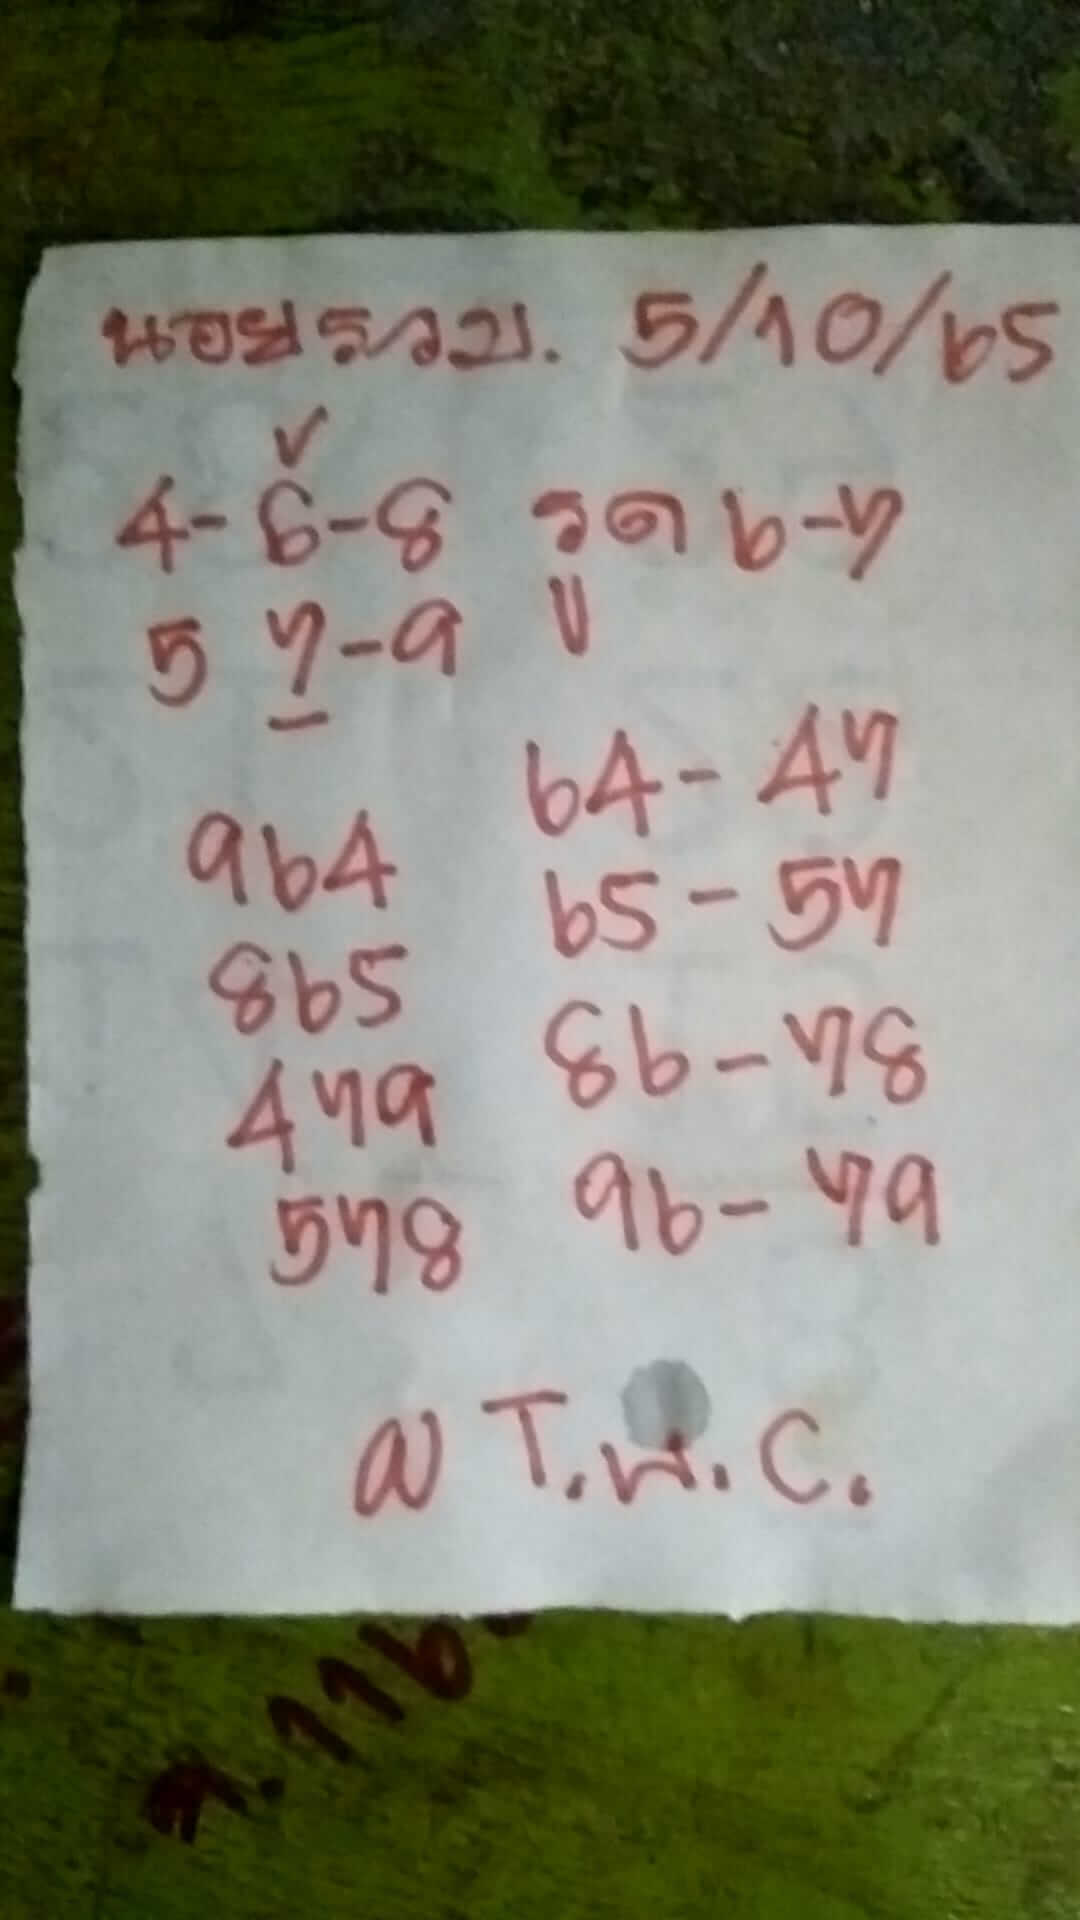 นอยรวย. 5/10/65
4-6-8 รูด 6-7
5 7-9
64-47
964
65-57
865
86-78
479
96-79
578
ฝ T.พ.C.